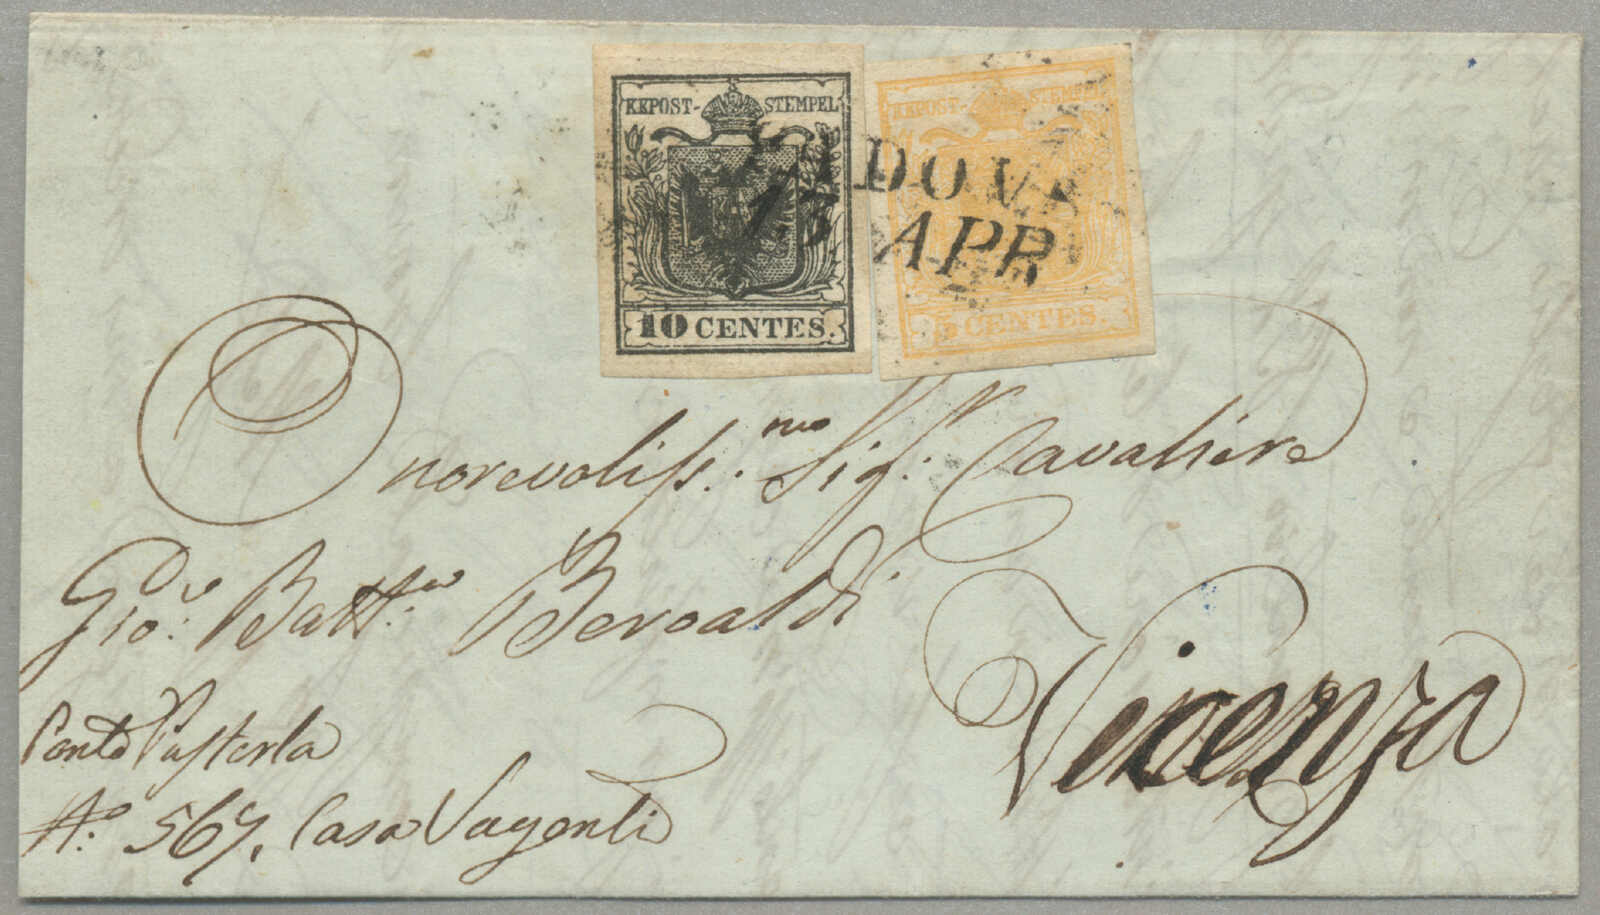 KKPOST-STEMPEL
10 CENTES.
KKPOST-STEMPEL
5 CENTES.
PADOVA
13 APR
Onorevoliss:mo Sig: Cavaliere
Gio: Batt: Beroaldi
Vicenza
Ponte Pusterla
N.o 567. Casa